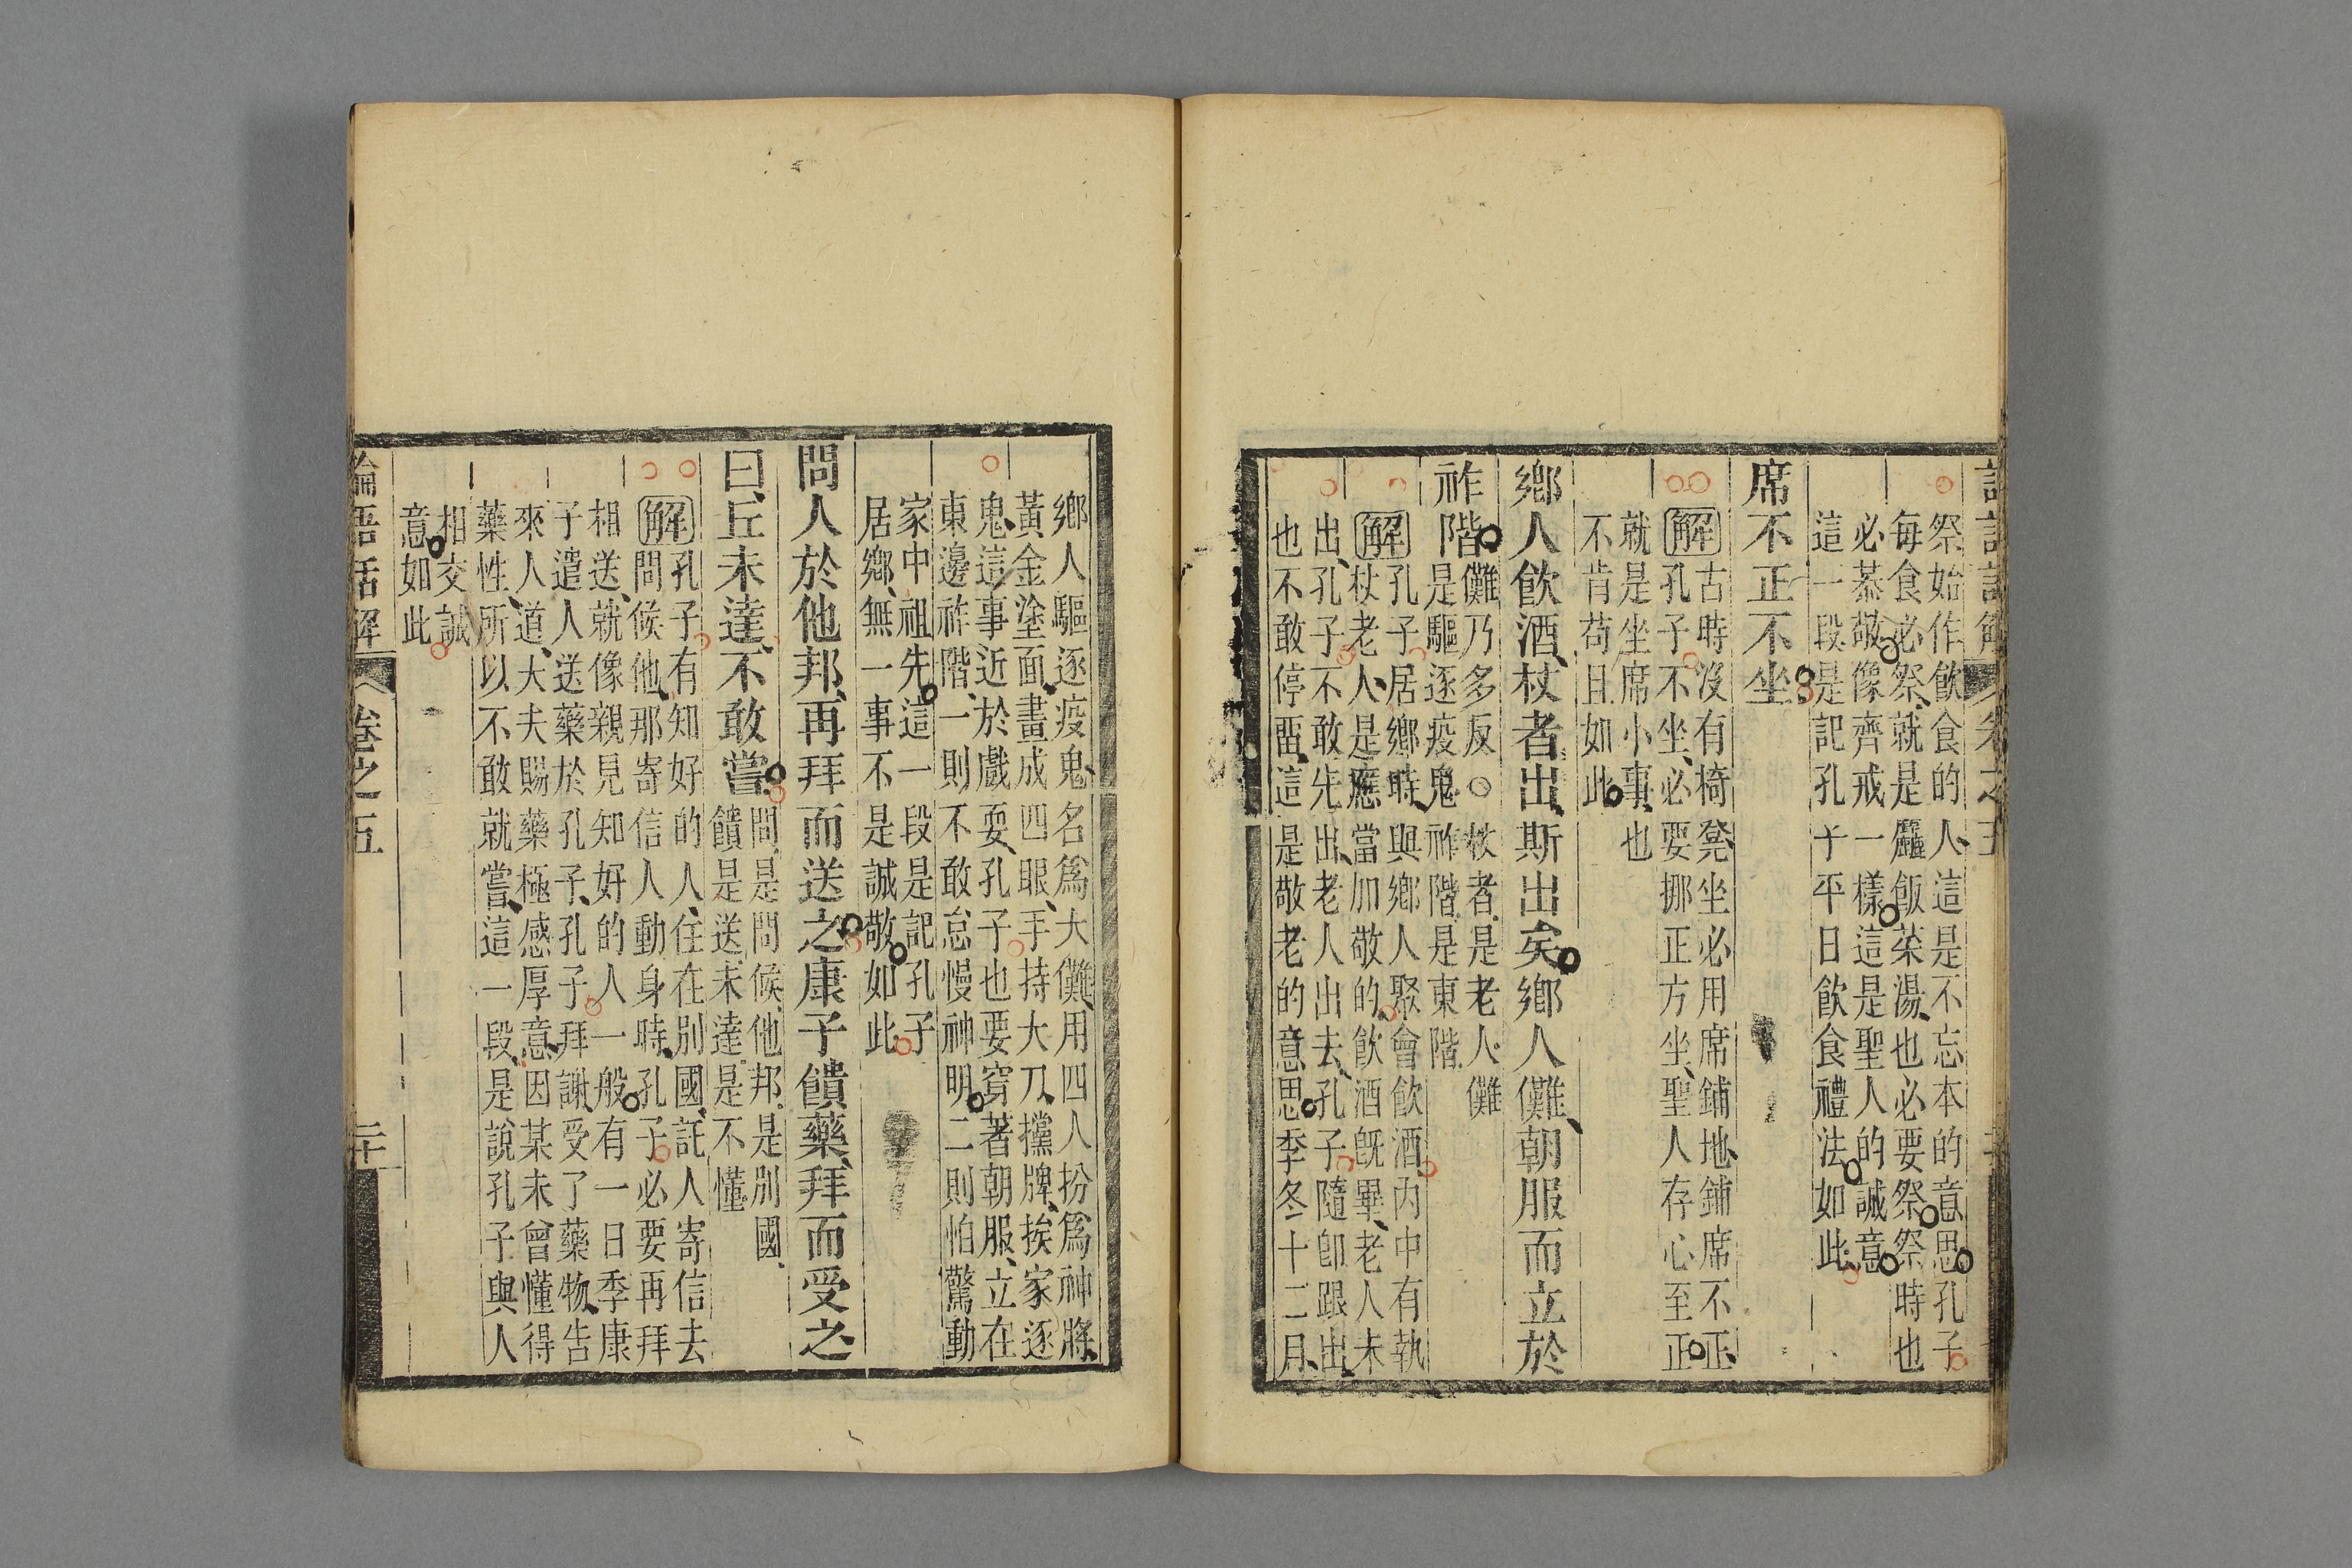 祭始作飲食的人、這是不忘本的意思。孔子
每食必祭、就是麤飯菜湯、也必要祭。祭時也
必恭敬、像齊戒一樣。這是聖人的誠意。
這一段是記孔子平日飲食禮法如此、
席不正不坐。
解古時沒有椅凳、坐必用席鋪地、鋪席不正、
孔子不坐、必要挪正方坐、聖人存心至正。
就是坐席小事、也
不肯苟且如此。
鄉人飲酒、杖者出、斯出矣。鄉人儺、朝服而立於
祚階。儺乃多反○杖者、是老人、儺
是驅逐疫鬼、祚階、是東階、
解孔子居鄉時、與鄉人聚會飲酒、內中有執
杖老人、是應當加敬的、飲酒旣畢、老人未
出、孔子不敢先出、老人出去、孔子隨卽跟出、
也不敢停畱、這是敬老的意思。季冬十二月、
鄉人驅逐疫鬼、名爲大儺、用四人扮爲神將、
黃金塗面、畫成四眼、手持大刀、攩牌、挨家逐
鬼、這事近於戲耍、孔子也要穿著朝服、立在
東邊祚階、一則不敢怠慢神明。二則怕驚動
家中祖先。這一段是記孔子
居鄉、無一事不是誠敬如此。
問人於他邦、再拜而送之。康子饋藥、拜而受之、
曰、丘未達、不敢嘗。問、是問候、他邦、是別國、
饋是送、未達、是不懂、
解孔子有知好的人、住在別國、託人寄信去
問候他、那寄信人動身時、孔子必要再拜
相送、就像親見知好的人一般。有一日季康
子遣人送藥於孔子、孔子拜謝、受了藥物、告
來人道、大夫賜藥極感厚意、因某未曾懂得
藥性、所以不敢就嘗、這一段、是說孔子與人
相交誠
意如此。
論語話解 卷之五 二十